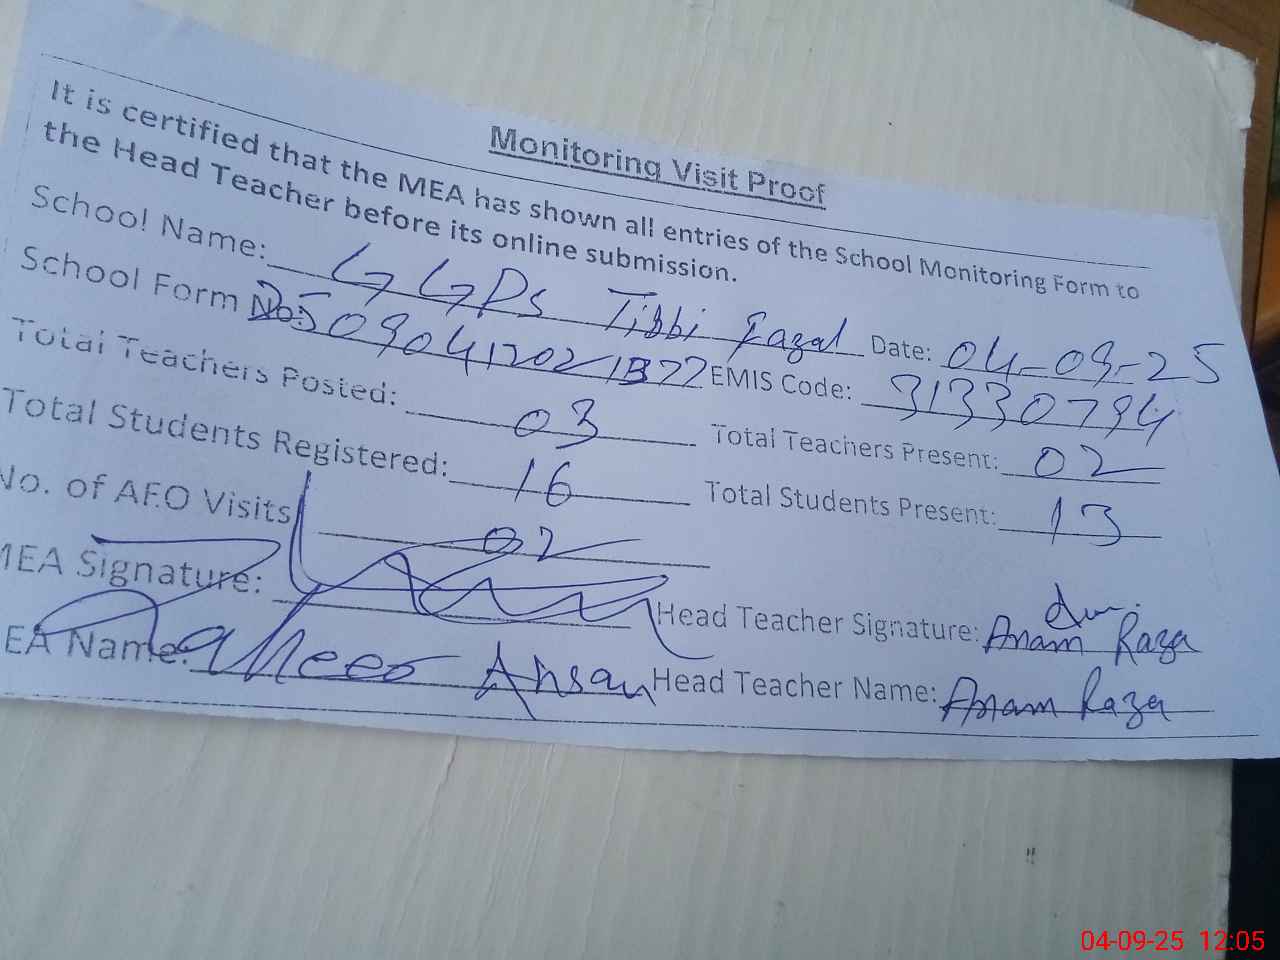 Monitoring Visit Proof
It is certified that the MEA has shown all entries of the School Monitoring Form to
the Head Teacher before its online submission.
School Name: GGPS Tibbi Fazal Date: 04-09-25
School Form No: EMIS Code: 31330794
Total Teachers Posted: 03 Total Teachers Present: 02
Total Students Registered: 16 Total Students Present: 13
No. of AEO Visits 02
MEA Signature: Head Teacher Signature: Anam Raza
EA Name: Zaheer Ahsan Head Teacher Name: Anam Raza
04-09-25 12:05